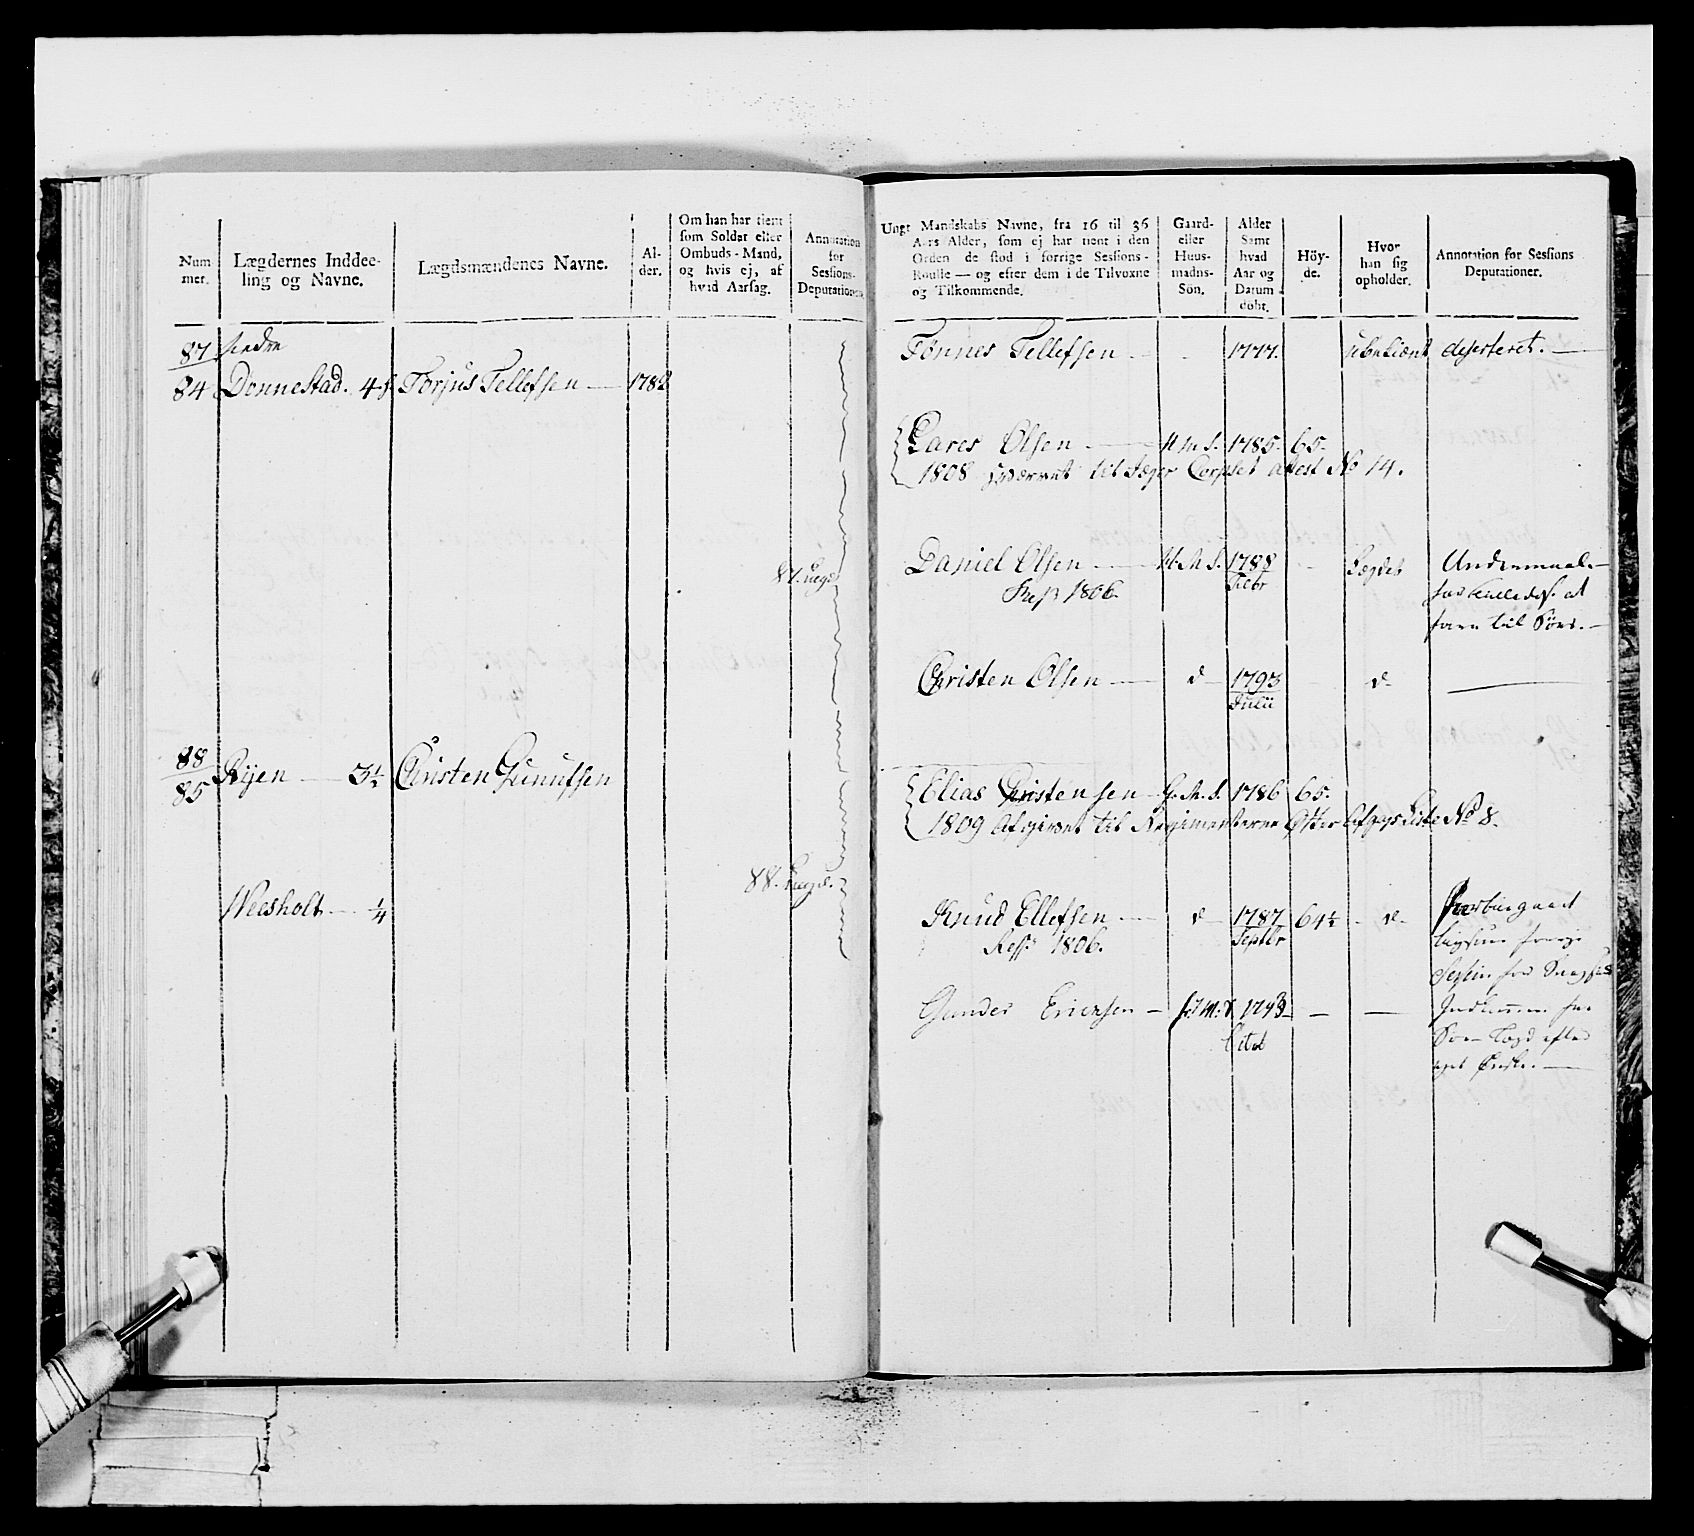 Num
mer.
Lægdernes Inddee-
ling og Navne.
Lægdsmændenes Navne.
Al-
der.
Om han har tient
som Soldat eller
Ombuds-Mand,
og hvis ej, af
hvad Aarsag.
Annotation
for
Sessions-
Deputationen.
87
84 Dønnestad. 4 Torjus Tellefsen 1782
87.
88
85 Rijen 3½ Christen Gunufsen
88.
Neesholt ¼
Ungt Mandskabs Navne, fra 16 til 36
Aars Alder, som ej har tient i den
Orden de stod i forrige Sessions-
Roulle — og efter dem i de Tilvoxne
og Tilkommende.
Gaard-
eller
Huus-
mands-
Søn.
Alder
Samt
hvad
Aar og
Datum
døbt.
Höy-
de.
Hvor
han sig
opholder.
Annotation for Sessions
Deputationer.
Tønnes Tellefsen 1777. deserteret.
Lares Olsen H.M.S. 1785. 65.
1808 til Jæger Corpset attest No 14.
Daniel Olsen H.M.S. 1788 Undermaal
Febr
1806. at
til Søes.
Christen Olsen d 1793 d
Julii
Elias Christensen G.M.S. 1786 65.
1809 Afgivet til Regimenterne efter Afgangs Liste No 8.
Knud Ellefsen d 1787 64½ d
Septbr
1806.
Gunder Ericksen